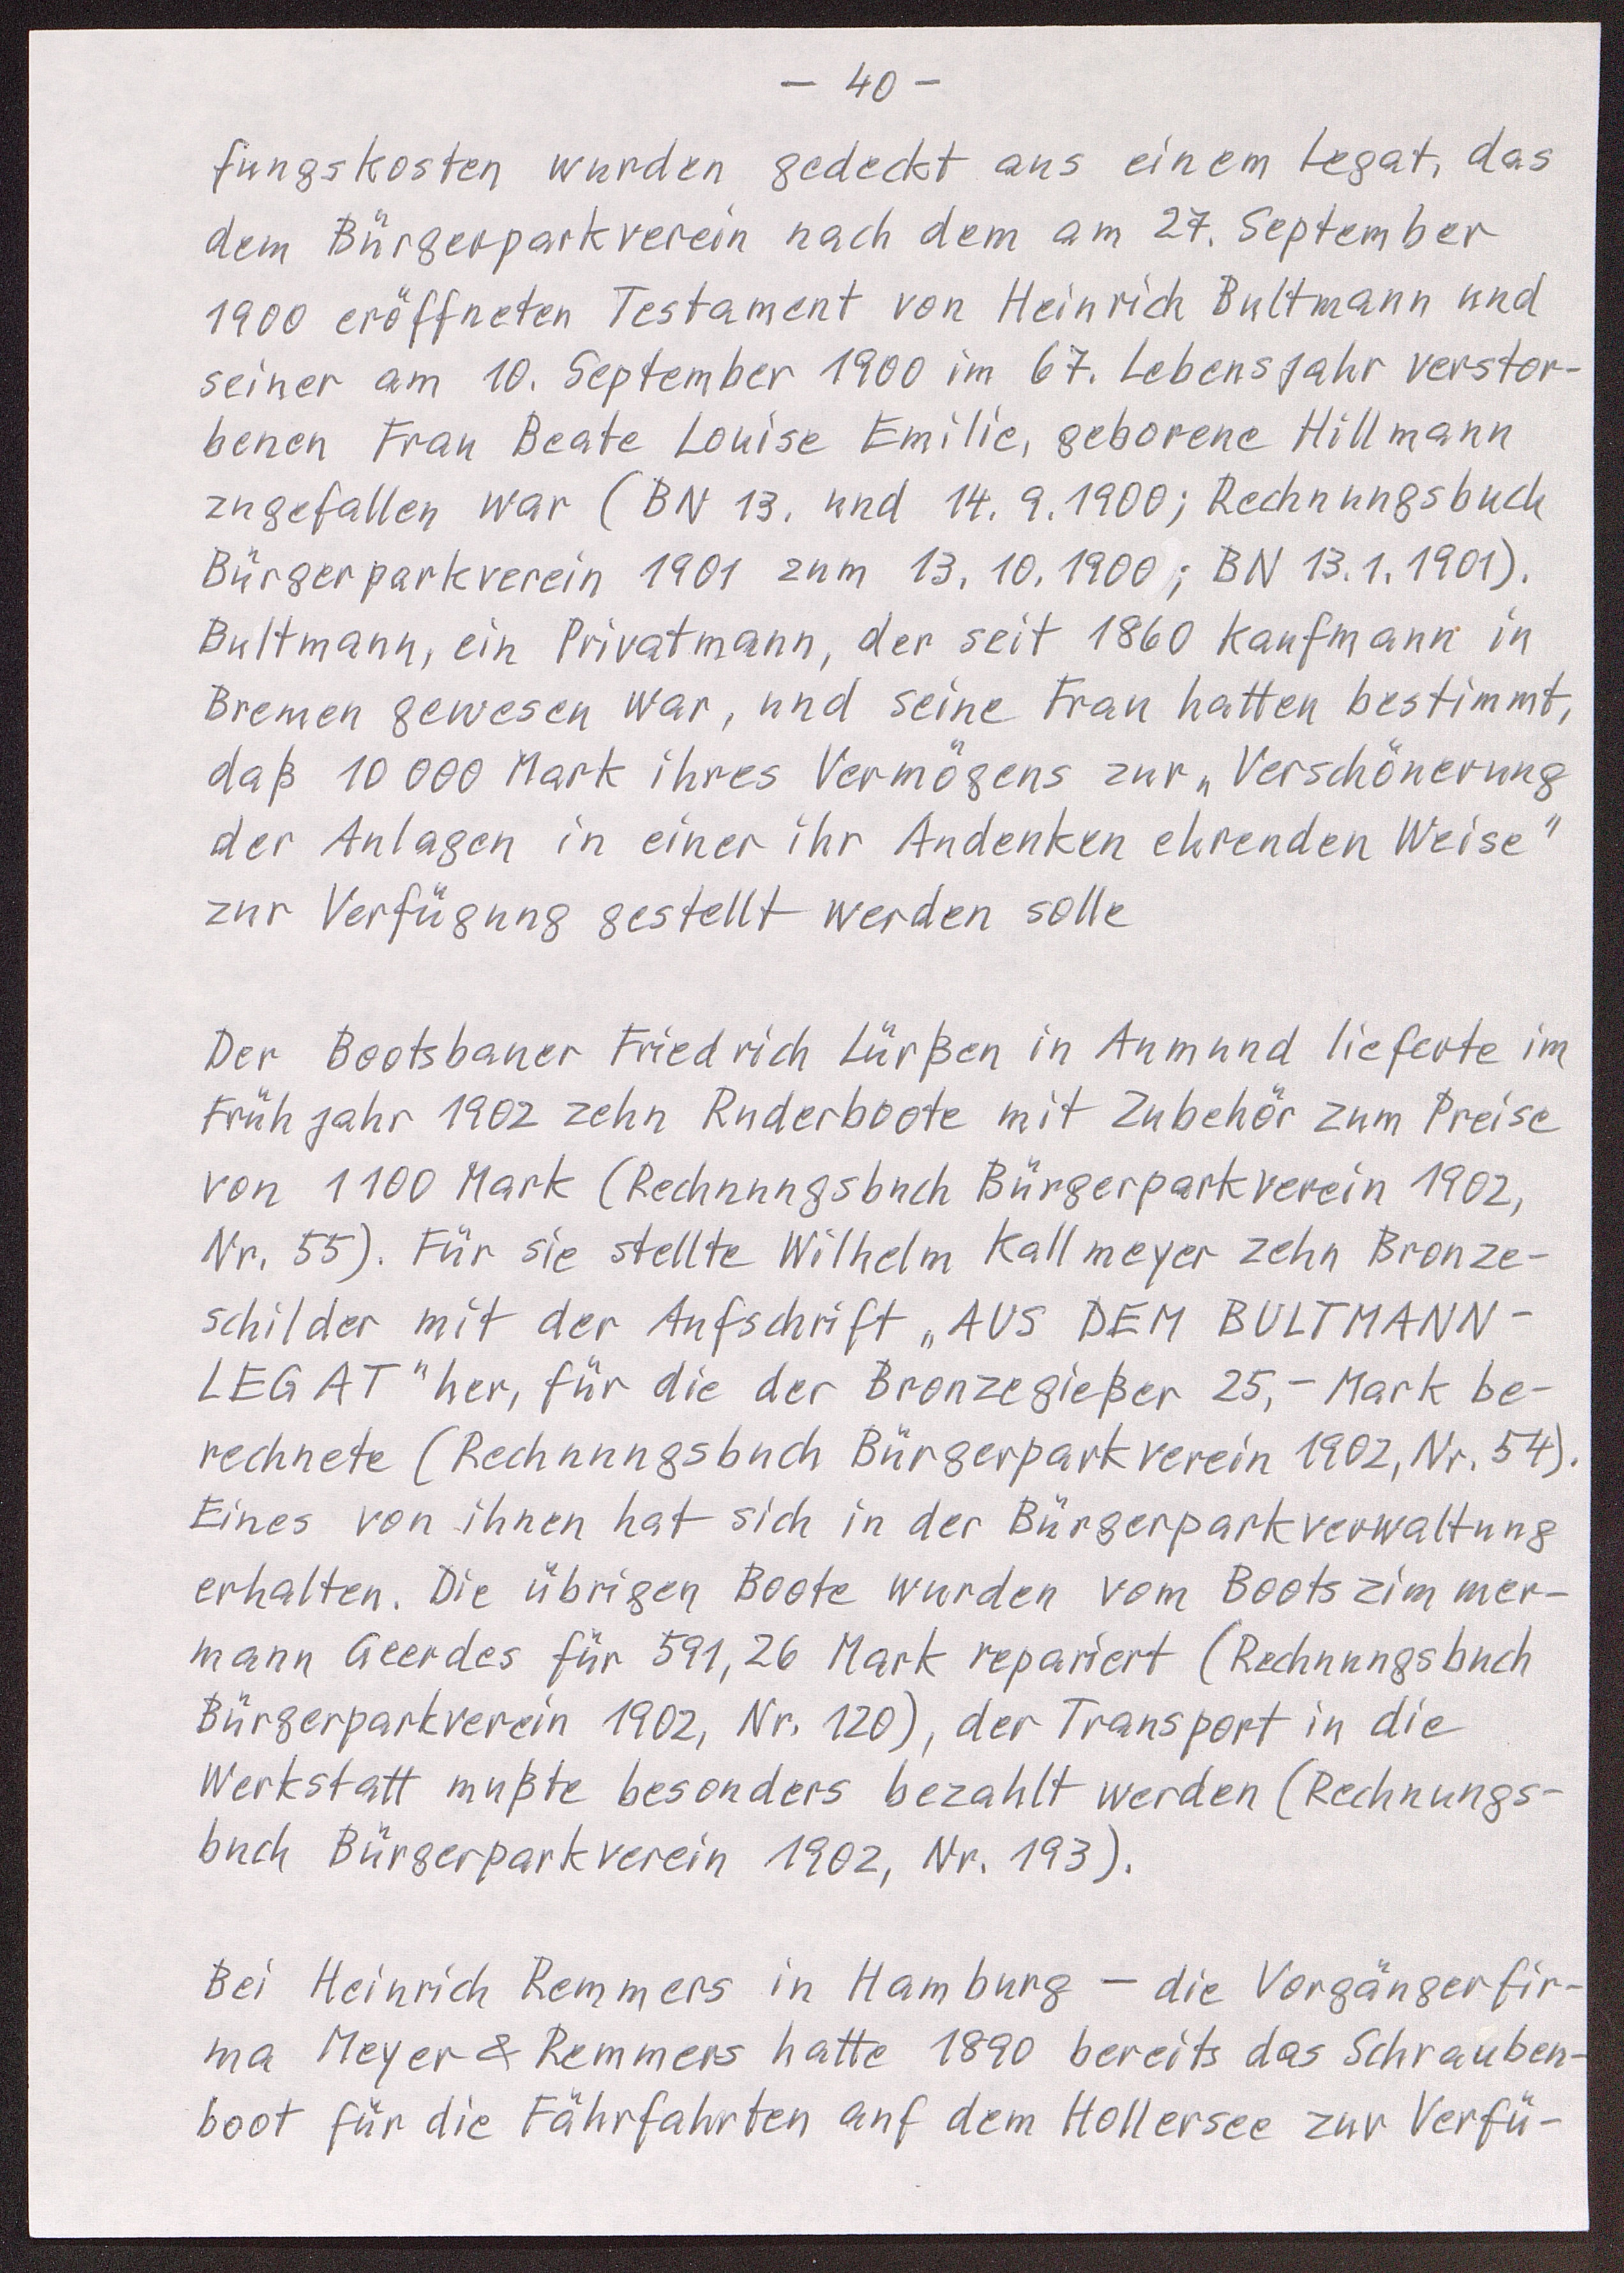 – 40 –
fungskosten wurden gedeckt aus einem Legat, das
dem Bürgerparkverein nach dem am 27. September
1900 eröffneten Testament von Heinrich Bultmann und
seiner am 10. September 1900 im 67. Lebensjahr verstor-
benen Frau Beate Louise Emilie, geborene Hillmann
zugefallen war (BN 13. und 14. 9. 1900; Rechnungsbuch
Bürgerparkverein 1901 zum 13. 10. 1900; BN 13. 1. 1901).
Bultmann, ein Privatmann, der seit 1860 Kaufmann in
Bremen gewesen war, und seine Frau hatten bestimmt,
daß 10 000 Mark ihres Vermögens zur „Verschönerung
der Anlagen in einer ihr Andenken ehrenden Weise"
zur Verfügung gestellt werden solle
Der Bootsbauer Friedrich Lürßen in Aumund lieferte im
Frühjahr 1902 zehn Ruderboote mit Zubehör zum Preise
von 1100 Mark (Rechnungsbuch Bürgerparkverein 1902,
Nr. 55). Für sie stellte Wilhelm Kallmeyer zehn Bronze-
schilder mit der Aufschrift „AUS DEM BULTMANN-
LEGAT" her, für die der Bronzegießer 25,– Mark be-
rechnete (Rechnungsbuch Bürgerparkverein 1902, Nr. 54).
Eines von ihnen hat sich in der Bürgerparkverwaltung
erhalten. Die übrigen Boote wurden vom Bootszimmer-
mann Geerdes für 591,26 Mark repariert (Rechnungsbuch
Bürgerparkverein 1902, Nr. 120), der Transport in die
Werkstatt mußte besonders bezahlt werden (Rechnungs-
buch Bürgerparkverein 1902, Nr. 193).
Bei Heinrich Remmers in Hamburg – die Vorgängerfir-
ma Meyer & Remmers hatte 1890 bereits das Schrauben-
boot für die Fährfahrten auf dem Hollersee zur Verfü-